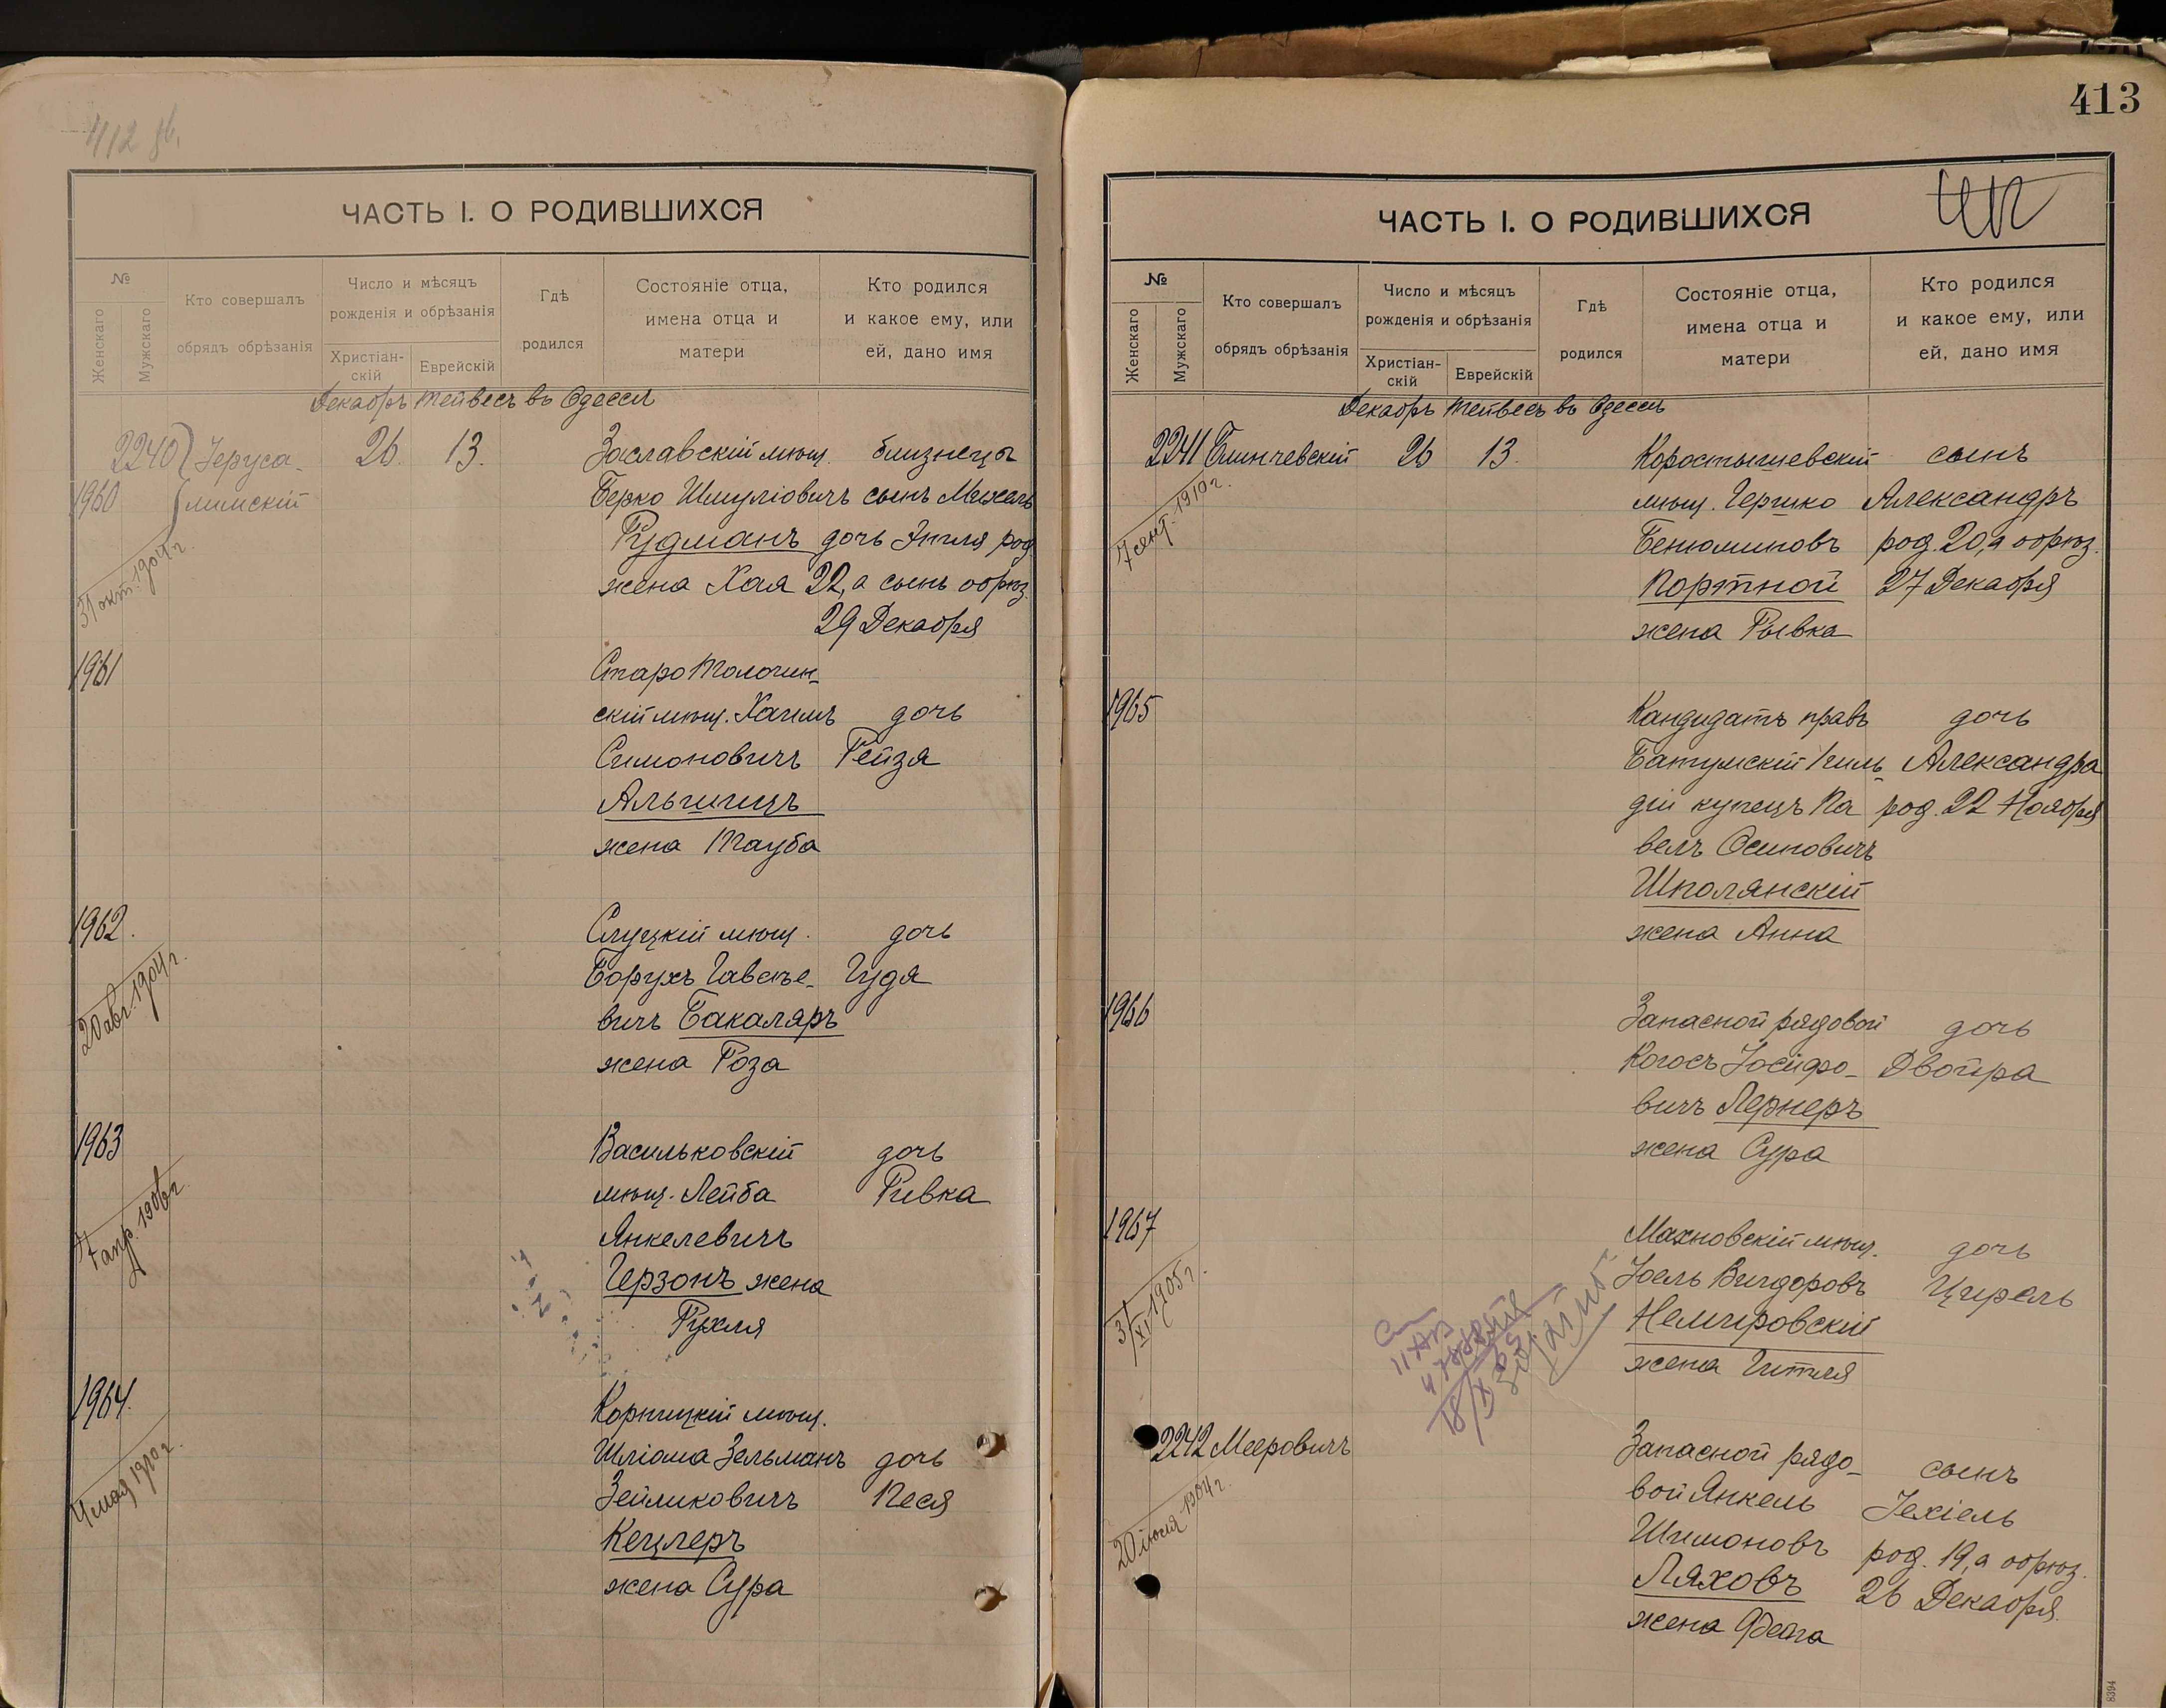 412 об.
ЧАСТЬ I. О РОДИВШИХСЯ
№
Женскаго
Мужскаго
Кто совершалъ
обрядъ обрѣзанія
Число и мѣсяцъ
рожденія и обрѣзанія
Христіан-
скій
Еврейскій
Гдѣ
родился
Состояніе отца,
имена отца и
матери
Кто родился
и какое ему, или
ей, дано имя
Декабрь Тейвесъ въ Одессѣ
2240 Іеруса- 26. 13. Заславскій мѣщ. близнецы
1960 лимскій Берко Шмуліовичъ сынъ Михель
31 окт. 1904 г. Рудманъ дочь Энтля род.
жена Хая 22, а сынъ обрѣз.
29 Декабря
1961 Старо Толочин-
скій мѣщ. Хаимъ дочь
Симоновичъ Рейзя
Альшицъ
жена Тауба
1962. Слуцкій мѣщ. дочь
20 авг. 1904 г. Борухъ Гавсѣе- Гудя
вичъ Бакаляръ
жена Роза
1963 Васильковскій дочь
17 апр. 1906 г. мѣщ. Лейба Ривка
Янкелевичъ
Герзонъ жена
Рухля
1964. Корницкій мѣщ.
4 мая 1910 г. Шліома Зельманъ дочь
Зейликовичъ Песя
Кецлеръ
жена Сура
413
ЧАСТЬ I. О РОДИВШИХСЯ
412
№
Женскаго
Мужскаго
Кто совершалъ
обрядъ обрѣзанія
Число и мѣсяцъ
рожденія и обрѣзанія
Христіан-
скій
Еврейскій
Гдѣ
родился
Состояніе отца,
имена отца и
матери
Кто родился
и какое ему, или
ей, дано имя
Декабрь Тейвесъ въ Одессѣ
2241 Блинчевскій 26 13. Коростышевскій сынъ
7 сент. 1910 г. мѣщ. Гершко Александръ
Бенюминовъ род. 20, а обрѣз.
Портной 27 Декабря
жена Рывка
1965 Кандидатъ правъ дочь
Батумскій 1 гиль- Александра
діи купецъ Па род. 22 Ноября
велъ Осиповичъ
Шполянскій
жена Анна
1966 Запасной рядовой дочь
Когосъ Іосифо- Двойра
вичъ Лернеръ
жена Сура
1967 Махновскій мѣщ. дочь
3/XI 1905 г. Іоель Вигдоровъ Цирель
Немировскій
жена Гитля
18/X
2242 Мееровичъ Запасной рядо- сынъ
20 іюля 1904 г. вой Янкель Іехіель
Шимоновъ род. 19, а обрѣз.
Ляховъ 26 Декабря.
жена Фейга
8394